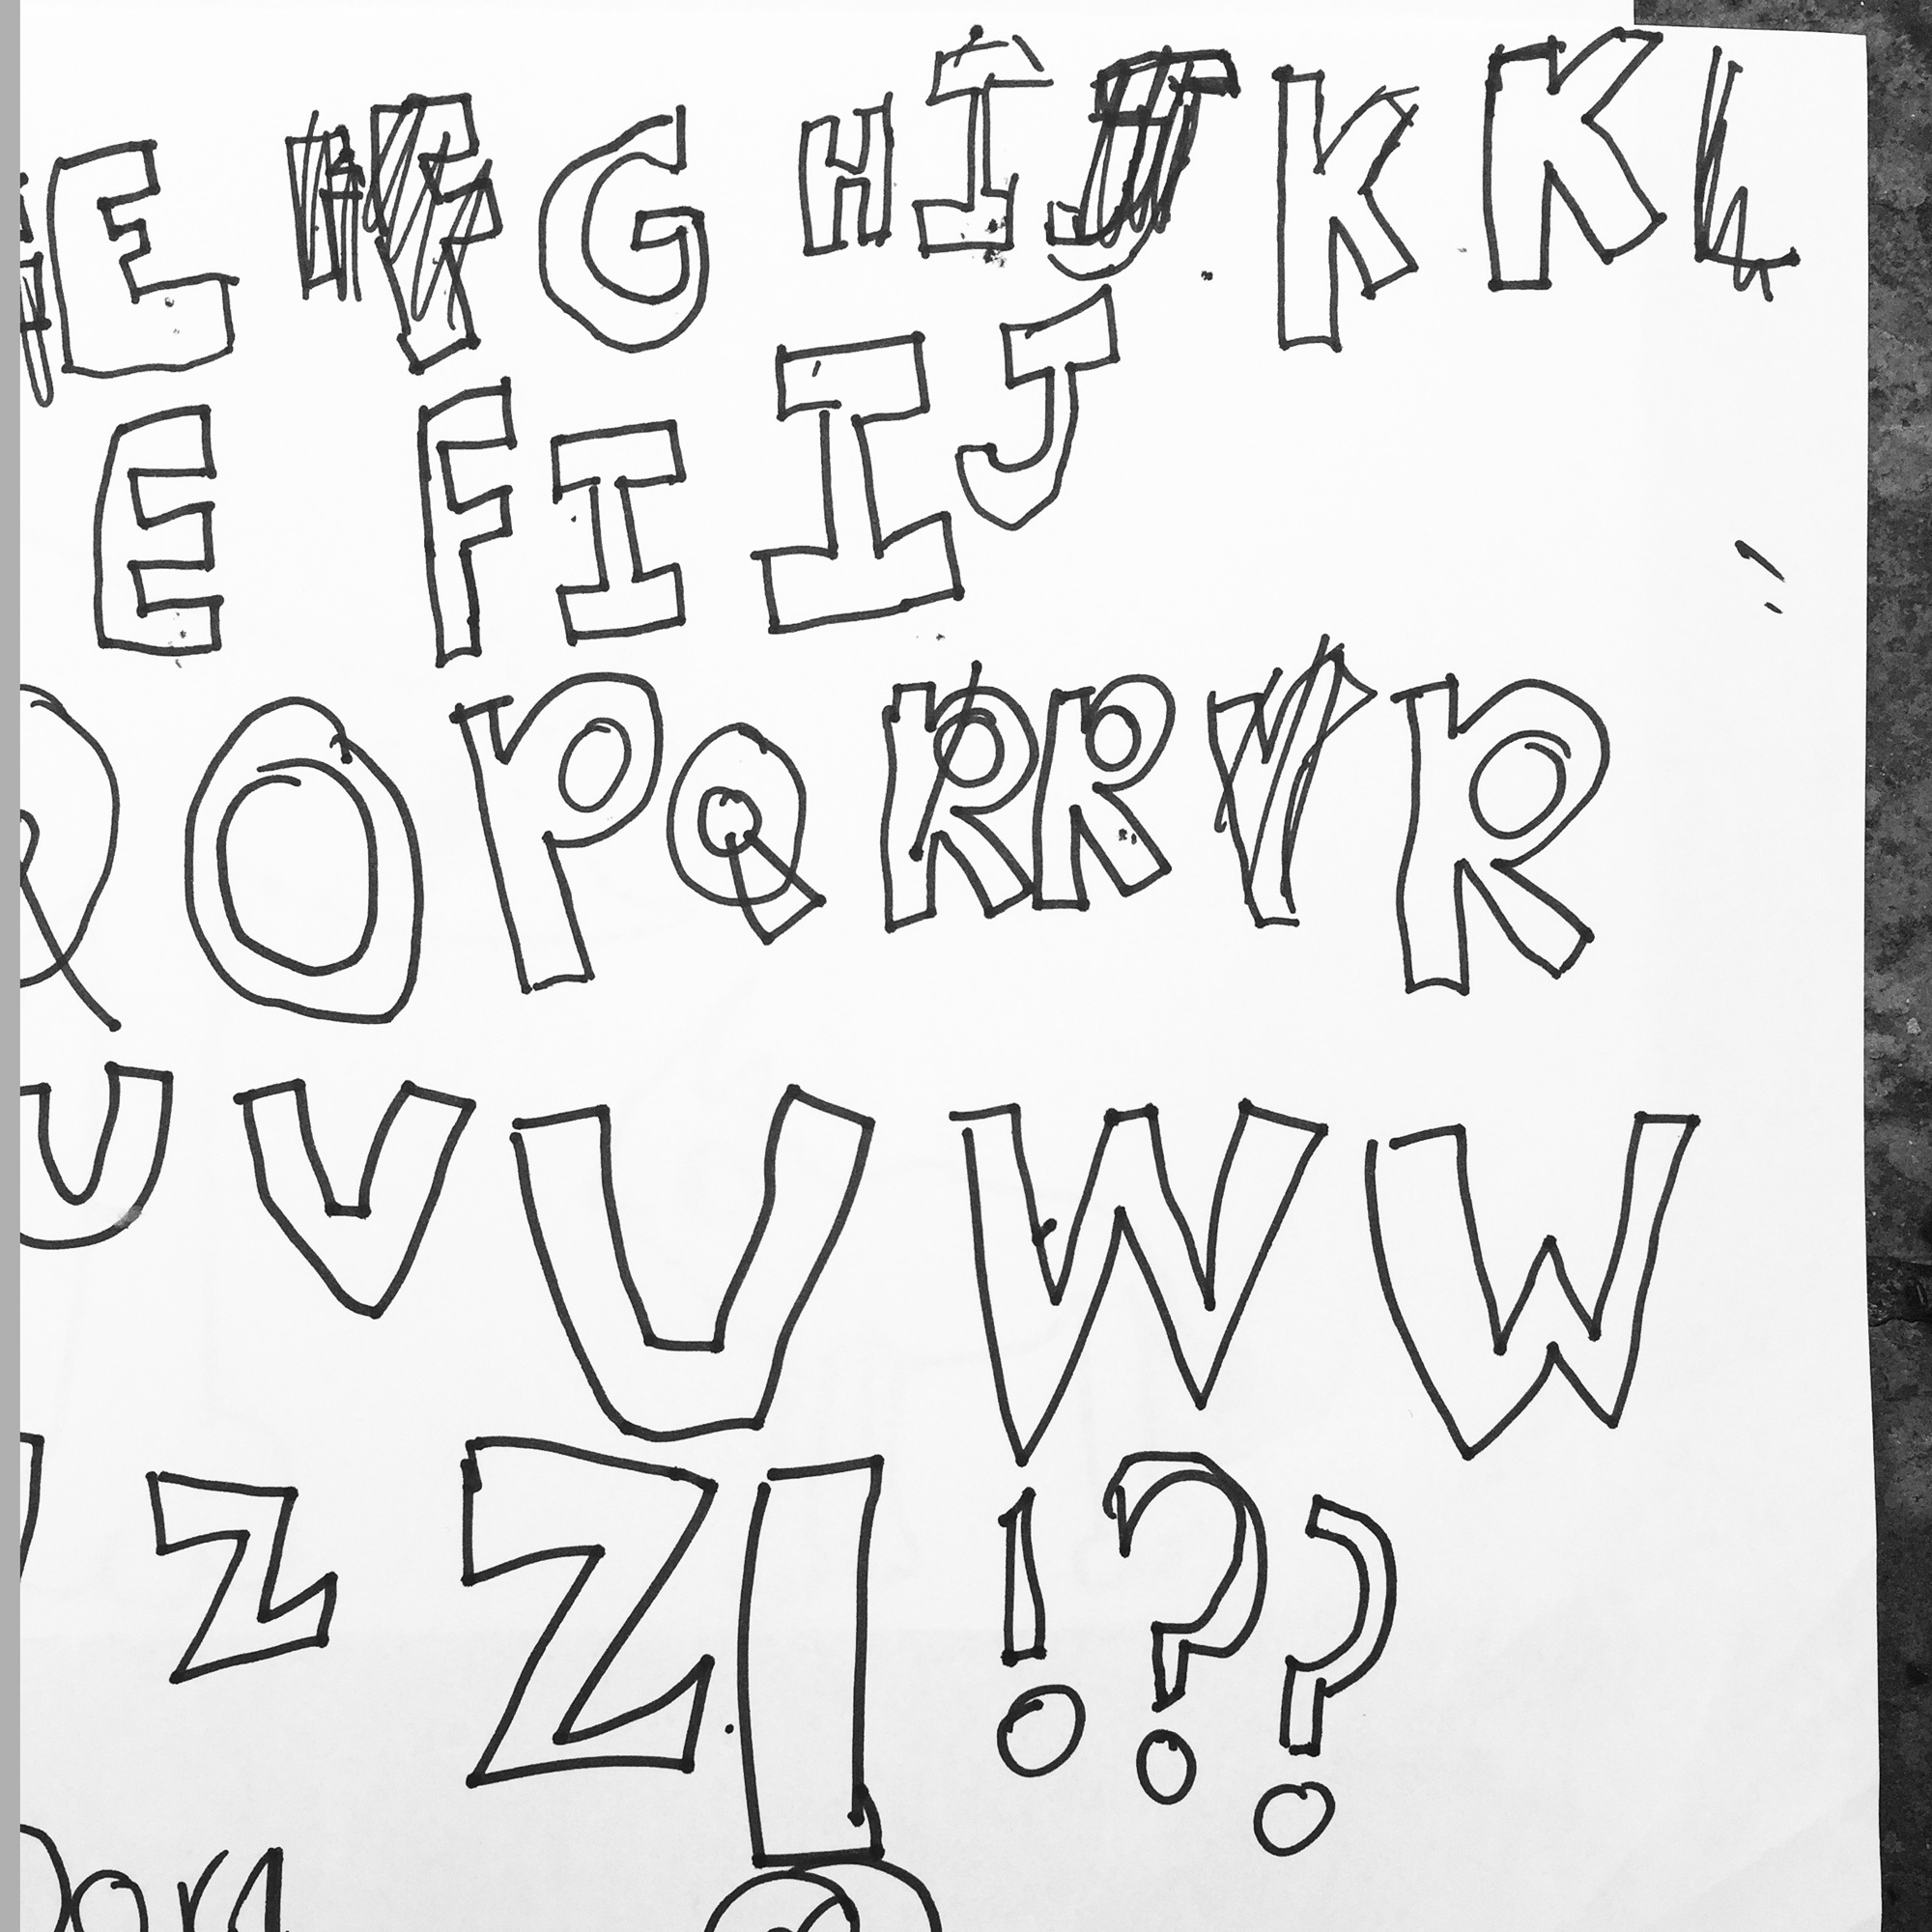 E G H I J K K
E F I I J
O P Q R R R
U V U W W
Z Z ! ! ? ?